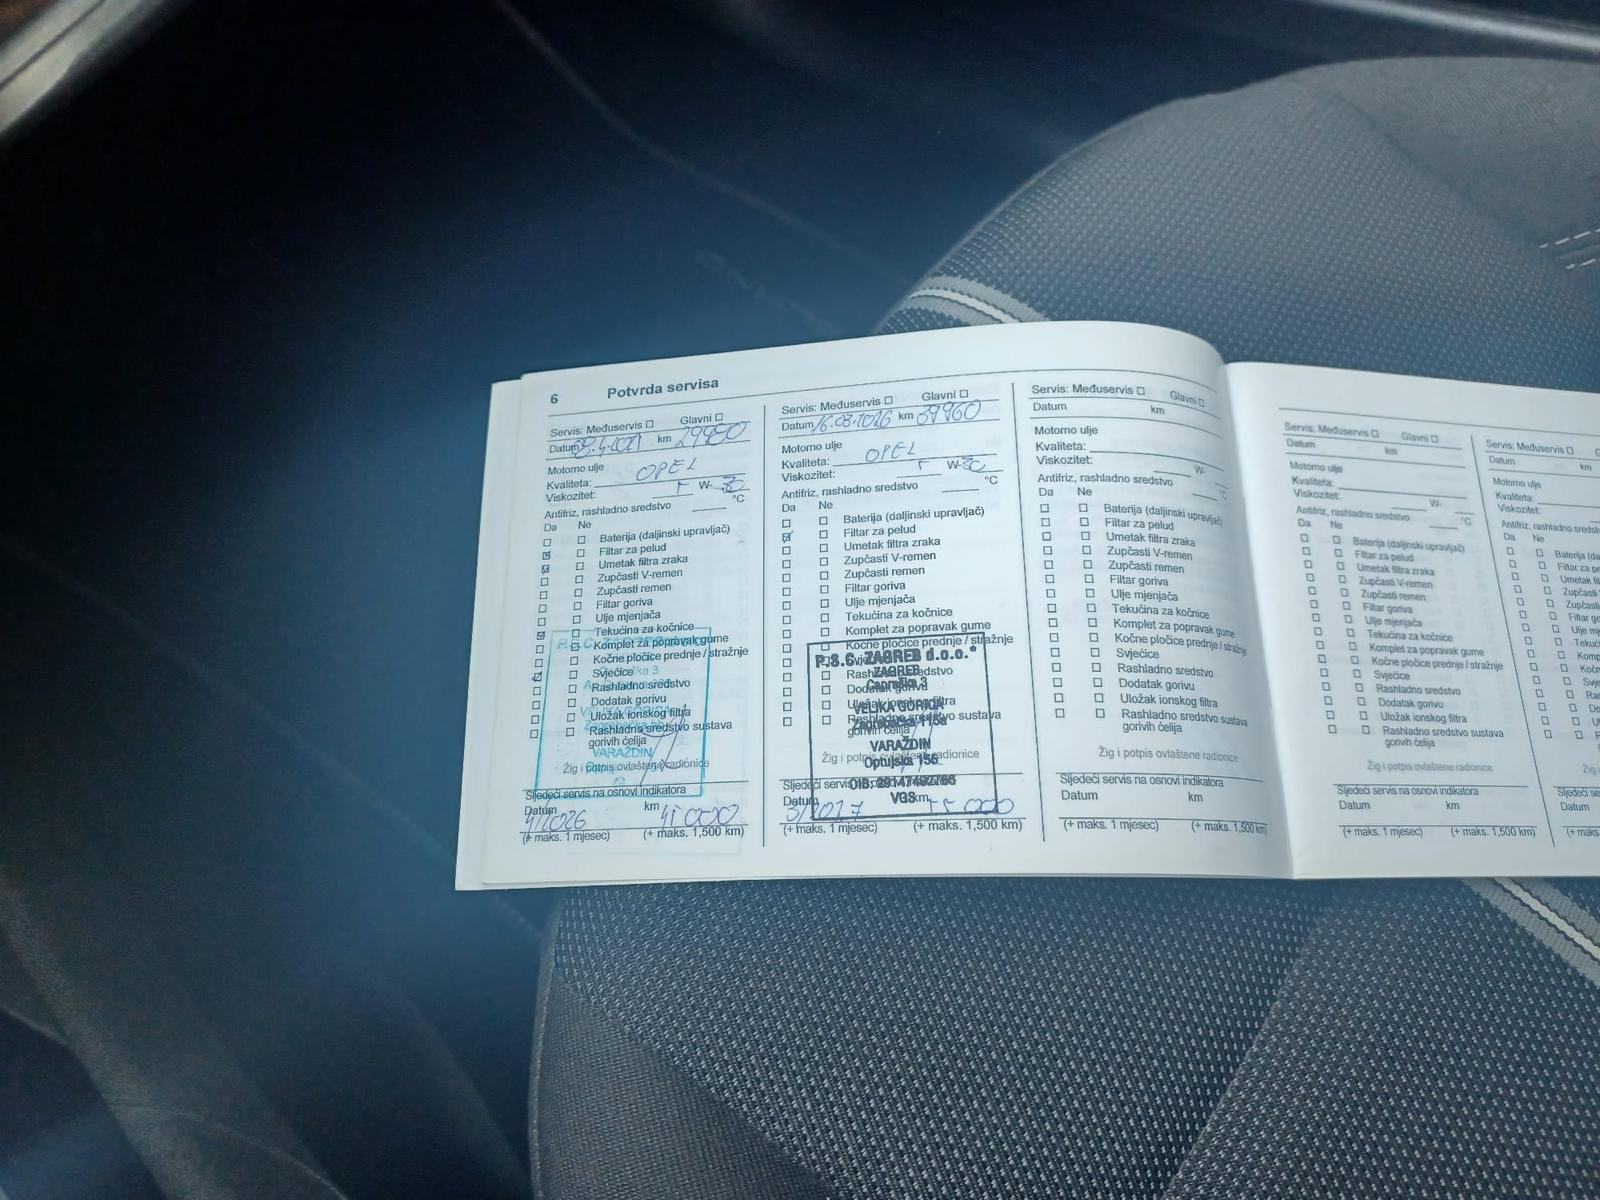 6 Potvrda servisa
Servis: Međuservis Glavni
Datum km 29980
Motorno ulje
Kvaliteta: OPEL
Viskozitet: 5 W- 30
Antifriz, rashladno sredstvo °C
Da Ne
Baterija (daljinski upravljač)
Filtar za pelud
Umetak filtra zraka
Zupčasti V-remen
Zupčasti remen
Filtar goriva
Ulje mjenjača
Tekućina za kočnice
Komplet za popravak gume
Kočne pločice prednje / stražnje
Svjećice
Rashladno sredstvo
Dodatak gorivu
Uložak ionskog filtra
Rashladno sredstvo sustava
gorivih ćelija
P.S.C. ZAGREB
VELIKA GORICA
VARAŽDIN
Žig i potpis ovlaštene radionice
Sljedeći servis na osnovi indikatora
Datum km
4/2026 45 000
(+ maks. 1 mjesec) (+ maks. 1,500 km)
Servis: Međuservis Glavni
Datum 16.03.2026 km 39960
Motorno ulje
Kvaliteta: OPEL
Viskozitet: 5 W-30
Antifriz, rashladno sredstvo °C
Da Ne
Baterija (daljinski upravljač)
Filtar za pelud
Umetak filtra zraka
Zupčasti V-remen
Zupčasti remen
Filtar goriva
Ulje mjenjača
Tekućina za kočnice
Komplet za popravak gume
Kočne pločice prednje / stražnje
Rashladno sredstvo
Dodatak gorivu
Uložak ionskog filtra
Rashladno sredstvo sustava
gorivih ćelija
P.S.C. ZAGREB d.o.o.
ZAGREB
Capraška 3
VELIKA GORICA
Zagrebačka 115a
VARAŽDIN
Optujska 156
OIB: 29147482766
VGS
Žig i potpis ovlaštene radionice
Sljedeći servis na osnovi indikatora
Datum km
3/2027 55 000
(+ maks. 1 mjesec) (+ maks. 1,500 km)
Servis: Međuservis Glavni
Datum km
Motorno ulje
Kvaliteta:
Viskozitet: W-
Antifriz, rashladno sredstvo °C
Da Ne
Baterija (daljinski upravljač)
Filtar za pelud
Umetak filtra zraka
Zupčasti V-remen
Zupčasti remen
Filtar goriva
Ulje mjenjača
Tekućina za kočnice
Komplet za popravak gume
Kočne pločice prednje / stražnje
Svjećice
Rashladno sredstvo
Dodatak gorivu
Uložak ionskog filtra
Rashladno sredstvo sustava
gorivih ćelija
Žig i potpis ovlaštene radionice
Sljedeći servis na osnovi indikatora
Datum km
(+ maks. 1 mjesec) (+ maks. 1,500 km)
Servis: Međuservis Glavni
Datum km
Motorno ulje
Kvaliteta:
Viskozitet: W-
Antifriz, rashladno sredstvo °C
Da Ne
Baterija (daljinski upravljač)
Filtar za pelud
Umetak filtra zraka
Zupčasti V-remen
Zupčasti remen
Filtar goriva
Ulje mjenjača
Tekućina za kočnice
Komplet za popravak gume
Kočne pločice prednje / stražnje
Svjećice
Rashladno sredstvo
Dodatak gorivu
Uložak ionskog filtra
Rashladno sredstvo sustava
gorivih ćelija
Žig i potpis ovlaštene radionice
Sljedeći servis na osnovi indikatora
Datum km
(+ maks. 1 mjesec) (+ maks. 1,500 km)
Servis: Međuservis
Datum km
Motorno ulje
Kvaliteta:
Viskozitet:
Antifriz, rashladno
Da Ne
Baterija
Filtar za
Datum